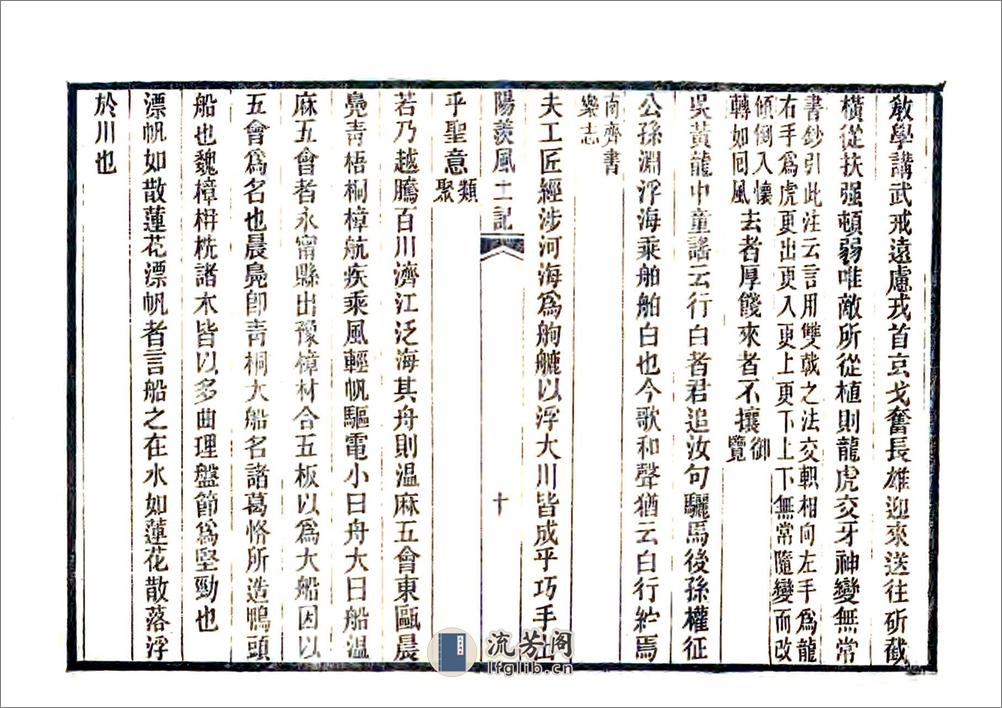 敵學講武戒遠慮戎首玄戈奮長雄迎來送往斫截
橫從扶强頓弱唯敵所從植則龍虎交牙神變無常
書鈔引此注云言用雙戟之法交軹相向左手爲龍
右手爲虎更出更入更上更下上下無常隨變而改
傾倒入懷
轉如回風
去者厚餞來者不攘
御
覽
吳黃龍中童謠云行白者君追汝句驪馬後孫權征
公孫淵浮海乘舶舶白也今歌和聲猶云白行紵焉
南齊書
樂志
夫工匠經涉河海爲舸艫以浮大川皆成乎巧手出
陽羨風土記
十
乎聖意
類
聚
若乃越騰百川濟江泛海其舟則温麻五會東甌晨
鳧青梧桐樟航疾乘風輕帆驅電小曰舟大曰船温
麻五會者永甯縣出豫樟材合五板以爲大船因以
五會爲名也晨鳧卽青桐大船名諸葛恪所造鴨頭
船也魏樟栟桄諸木皆以多曲理盤節爲堅勁也
漂帆如散蓮花漂帆者言船之在水如蓮花散落浮
於川也
流芳阁
lfglib.cn